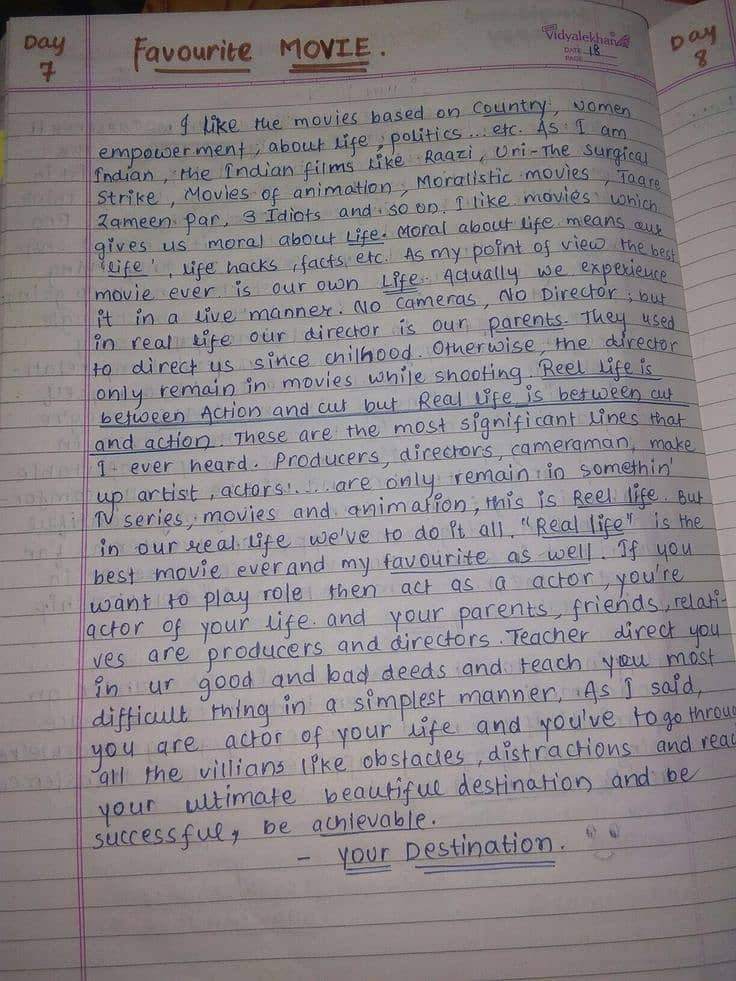 Day
7
Favourite MOVIE.
Vidyalekhan
DATE 18
PAGE
Day
8
I like the movies based on Country, women
empowerment, about life, politics... etc. As I am
Indian, the Indian films like Raazi, Uri-The Surgical
Strike, Movies of animation, Moralistic movies, Taare
Zameen Par, 3 Idiots and so on. I like movies which
gives us moral about Life. Moral about life means our
'Life', life hacks, facts etc. As my point of view the best
movie ever is our own Life. Actually we experience
it in a live manner. No Cameras, No Director, but
in real life our director is our parents. They used
to direct us since chilhood. Otherwise, the director
only remain in movies while shooting. Reel Life is
between Action and cut but Real Life is between cut
and action. These are the most significant lines that
I ever heard. Producers, directors, cameraman, make
up artist, actors.... are only remain in somethin'
TV series, movies and animation, this is Reel life. But
in our real life we've to do it all. "Real life" is the
best movie ever and my favourite as well. If you
want to play role then act as a actor, you're
actor of your life and your parents, friends, relati-
ves are producers and directors. Teacher direct you
in ur good and bad deeds and teach you most
difficult thing in a simplest manner. As I said,
you are actor of your life and you've to go throu
all the villians like obstacles, distractions and reac
your ultimate beautiful destination and be
successful, be achievable.
- Your Destination.